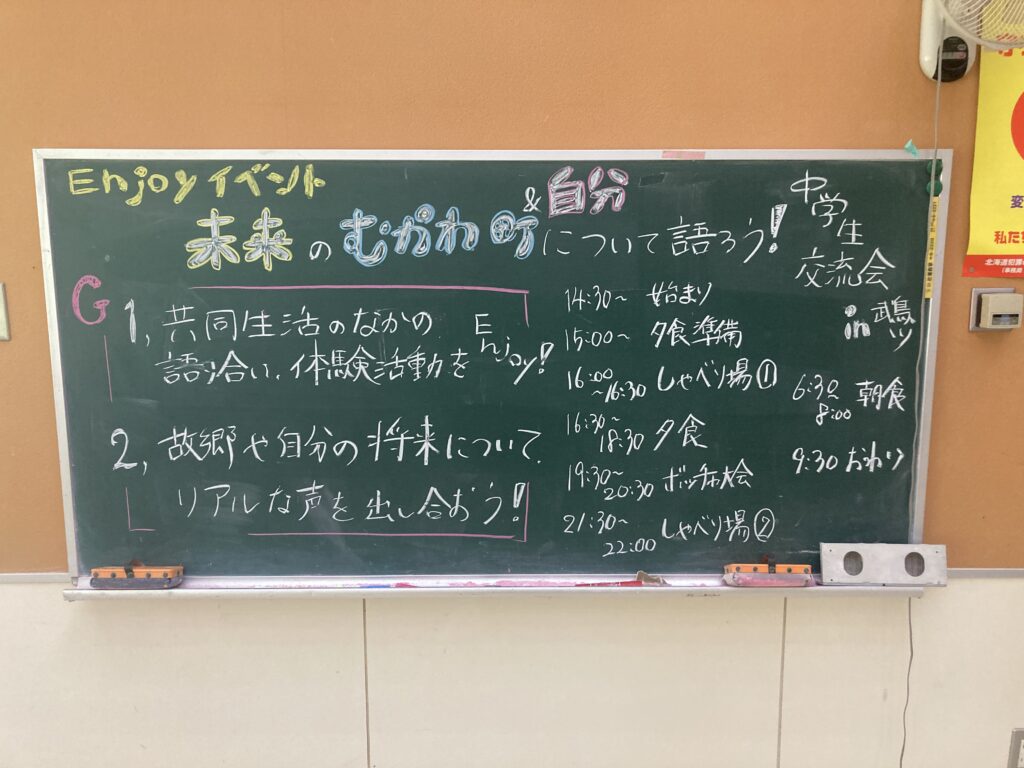 Enjoyイベント
未来のむかわ町&自分について語ろう!
中学生
交流会
in 武鳥ツ
G
1, 共同生活のなかの
語り合い、体験活動を Enjoy!
2, 故郷や自分の将来について、
リアルな声を出し合おう!
14:30~ 始まり
15:00~ 夕食準備
16:00~16:30 しゃべり場①
16:30~18:30 夕食
19:30~20:30 ボッチャ大会
21:30~22:00 しゃべり場②
6:30~8:00 朝食
9:30 おわり
変
私たち
北海道犯罪